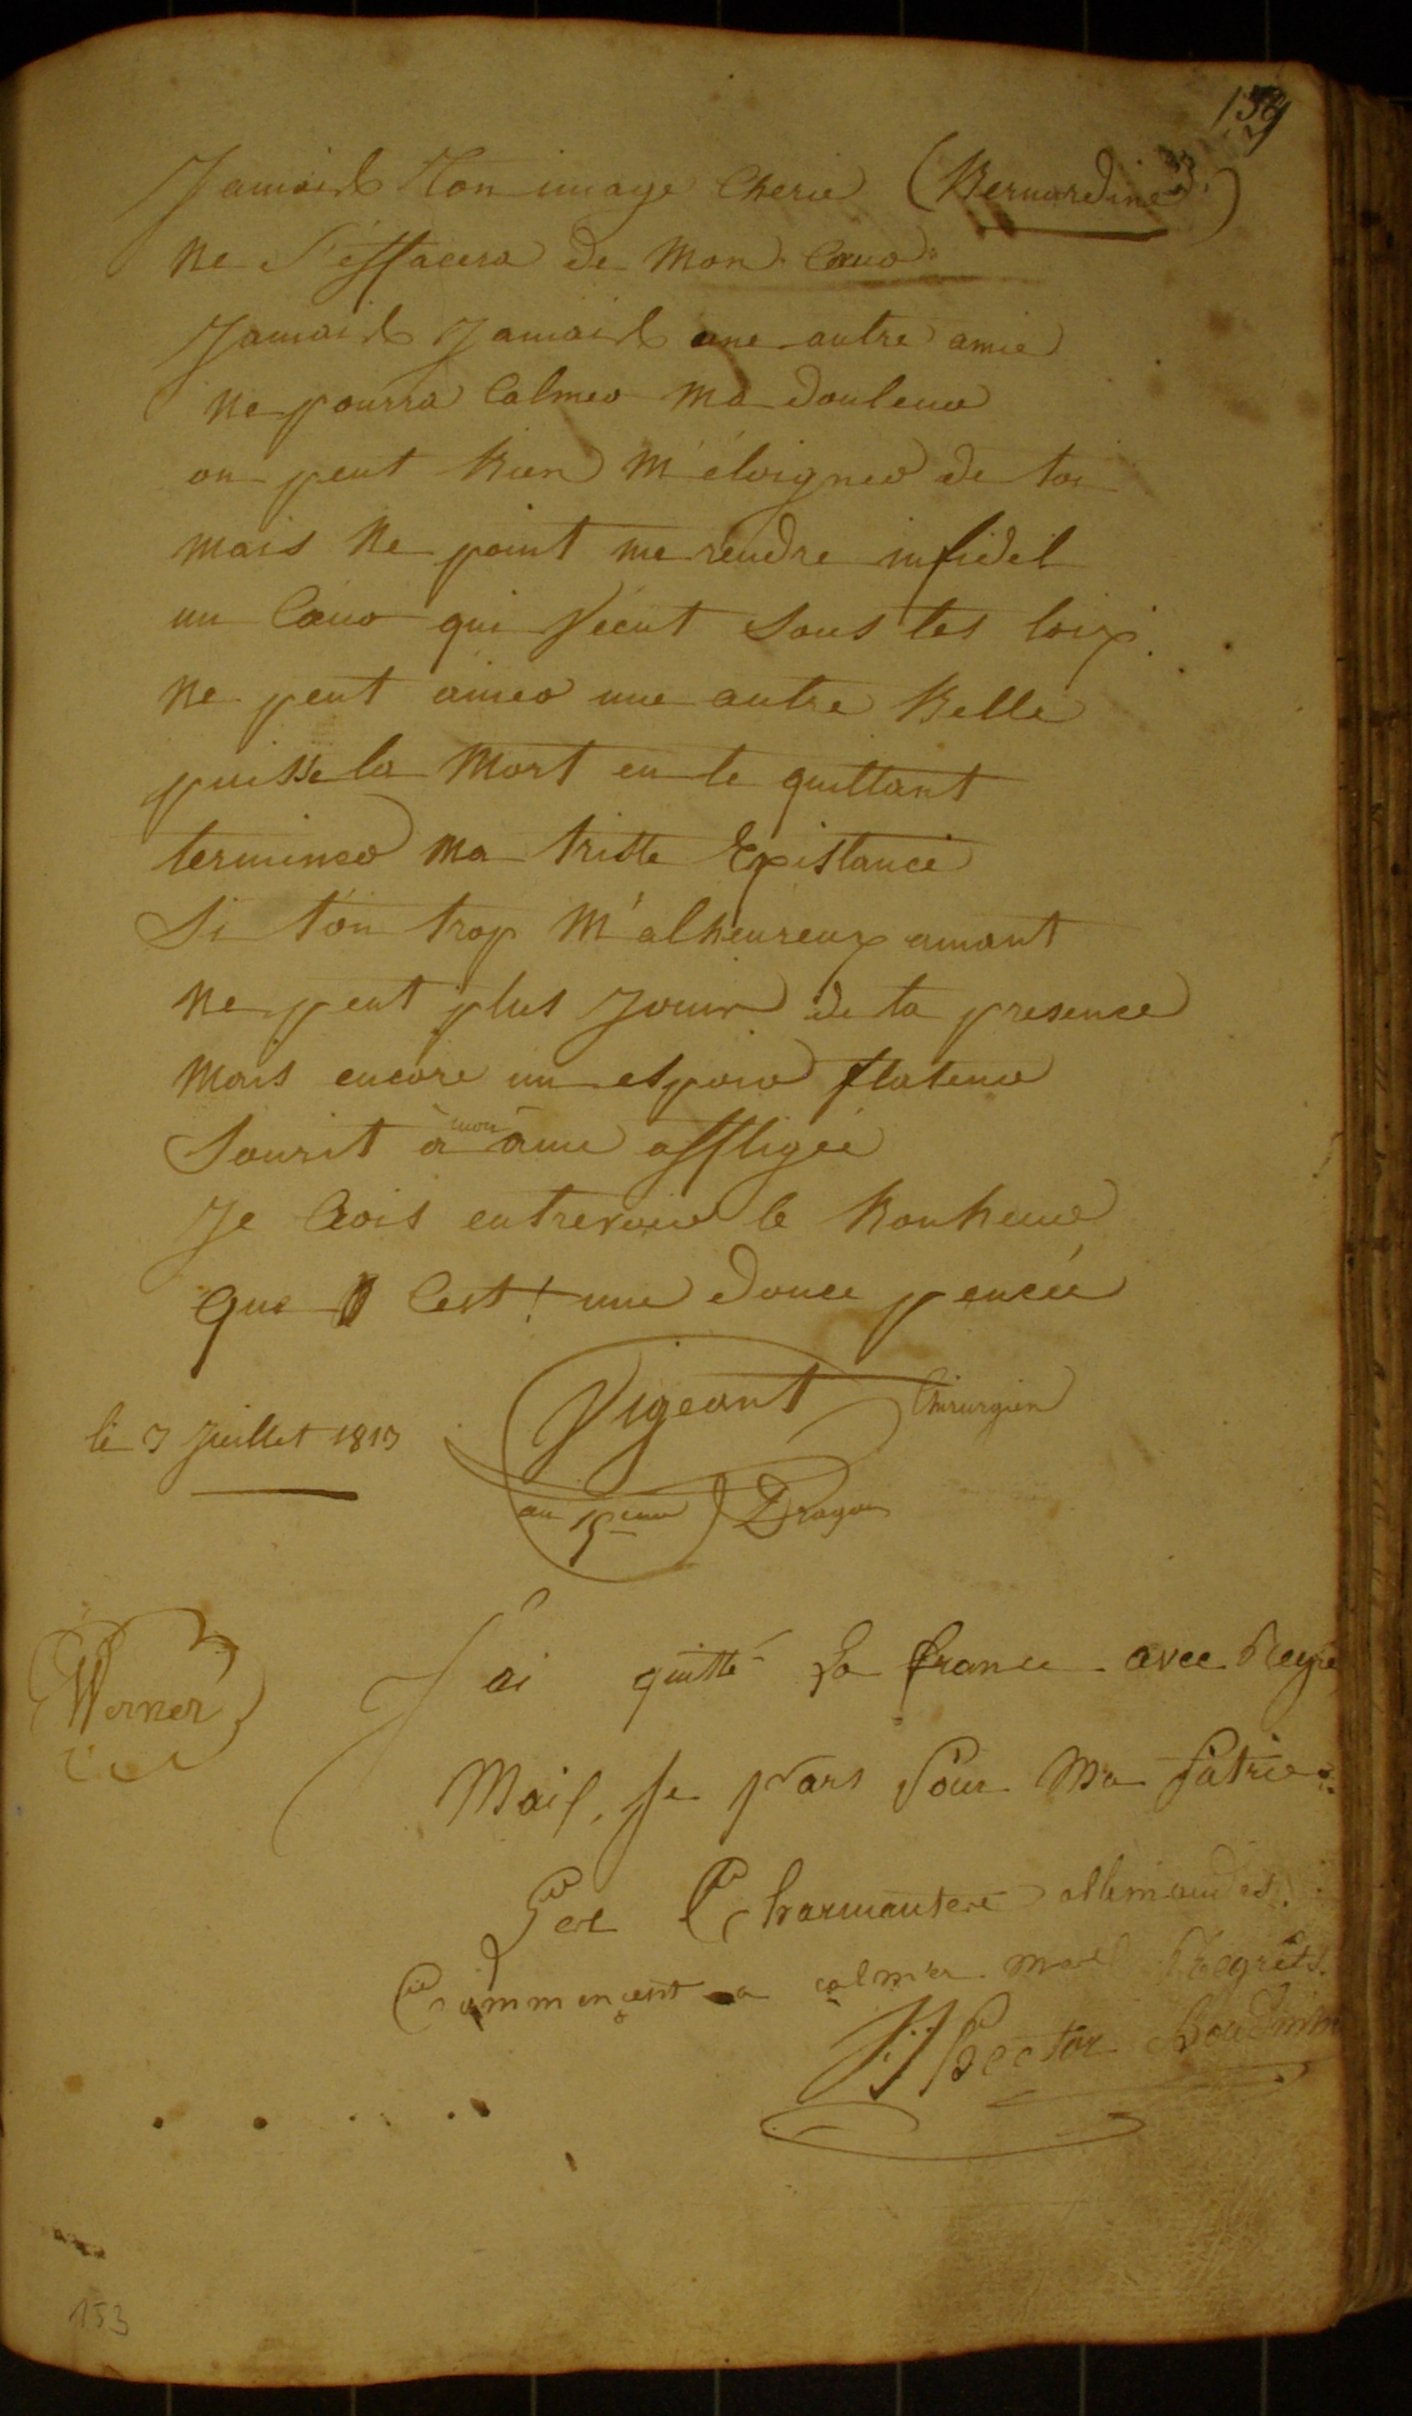 Jamais Ton image Cherie (Bernardine)
ne S'éffacera de Mon Cœur
Jamais Jamais une autre amie
ne pourra Calmer ma douleur
on peut bien m'éloigner de toi
mais ne point me rendre infidel
un Cœur qui Vécut Sous tes loix
ne peut aimer une autre Belle
puisse la Mort en te quittant
terminer ma triste Existance
Si ton trop M'alheureux amant
ne peut plus Jouir de ta presence
mais encore un espoir flateur
Sourit à mon âme affligée
Je Crois entrevoir le Bonheur
Que C'est! une douce pencée
Vigeant Chirurgien
le 3 Juillet 1813
au Dragon
Werner
J'ai quitté La france avec Regre
Mais, Je pars Pour Ma Patrie
Les Charmantes allemandes
Commençent a calmer mes Regrets.
Hector
153